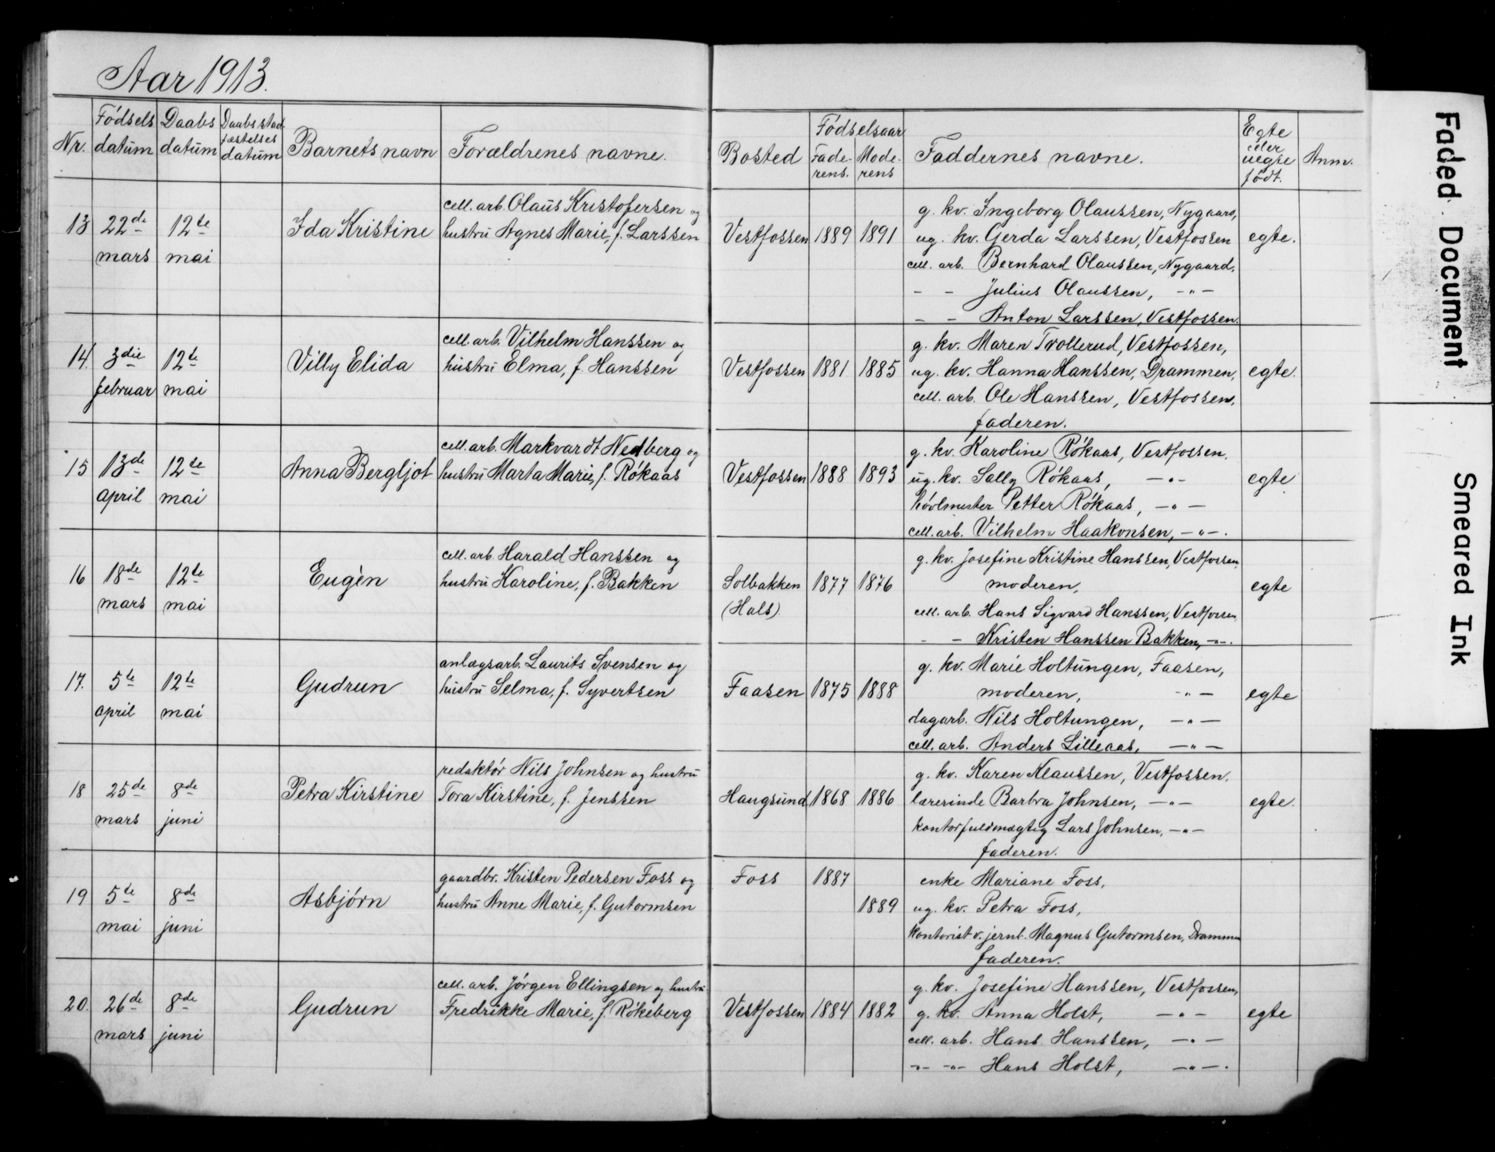 Aar 1913.
Nr. Fødsels datum Daabs datum Daabsstad fæstelses datum Barnets navn Forældrenes navne. Bosted Fødselsaar Fade-rens. Mode-rens Faddernes navne. Egte eller uegte født. Anm.
13 22de mars 12te mai Ida Kristine
cell. arb. Olaus Kristofersen og
hustru Agnes Marie, f. Larssen
Vestfossen 1889 1891
g. kv. Ingeborg Olaussen, Nygaard,
ug. kv. Gerda Larssen, Vestfossen
cell. arb. Bernhard Olaussen, Nygaard,
- - Julius Olaussen, -"-
- - Anton Larssen, Vestfossen.
egte.
14. 3die februar 12te mai Villy Elida
cell. arb. Vilhelm Hanssen og
hustru Elma, f. Hanssen
Vestfossen 1881 1885
g. kv. Maren Trollerud, Vestfossen,
ug. kv. Hanna Hanssen, Drammen,
cell. arb. Ole Hanssen, Vestfossen,
faderen.
egte.
15 13de april 12te mai Anna Bergljot
cell. arb. Markvardt Nedberg og
hustru Marta Marie, f. Røkaas
Vestfossen 1888 1893
g. kv. Karoline Røkaas, Vestfossen.
ug. kv. Sally Røkaas, -"-
høvlmester Petter Røkaas, -"-
cell. arb. Vilhelm Haakonsen, -"-.
egte
16 18de mars 12te mai Eugèn
cell. arb. Harald Hanssen og
hustru Karoline, f. Bakken
Solbakken
(Hals)
1877 1876
g. kv. Josefine Kristine Hanssen, Vestfossen
moderen,
cell. arb. Hans Sigvard Hanssen, Vestfossen
- - Kristen Hanssen Bakken, -"-.
egte
17. 5te april 12te mai Gudrun
anlægsarb. Laurits Svensen og
hustru Selma, f. Syvertsen
Faasen 1875 1888
g. kv. Marie Holtungen, Faasen,
moderen, -"-
dagarb. Nils Holtungen, -"-
cell. arb. Anders Lilleaas, -"-
egte
18 25de mars 8de juni Petra Kirstine
redaktør Nils Johnsen og hustru
Tora Kirstine, f. Jenssen
Haugsund 1868 1886
g. kv. Karen Klaussen, Vestfossen.
lærerinde Barbra Johnsen, -"-
kontorfuldmægtig Lars Johnsen, -"-
faderen.
egte.
19 5te mai 8de juni Asbjørn
gaardbr. Kristen Pedersen Foss og
hustru Anne Marie, f. Gutormsen
Foss 1887 1889
enke Mariane Foss,
ug. kv. Petra Foss,
kontorist v. jernb. Magnus Gutormsen, Drammen
faderen.
20. 26de mars 8de juni Gudrun
cell. arb. Jørgen Ellingsen og hustru
Fredrikke Marie, f. Røkeberg
Vestfossen 1884 1882
g. kv. Josefine Hanssen, Vestfossen,
g. kv. Anna Holst, -"-
cell. arb. Hans Hanssen, -"-
-"- -"- Hans Holst, -"-.
egte
Faded Document
Smeared Ink